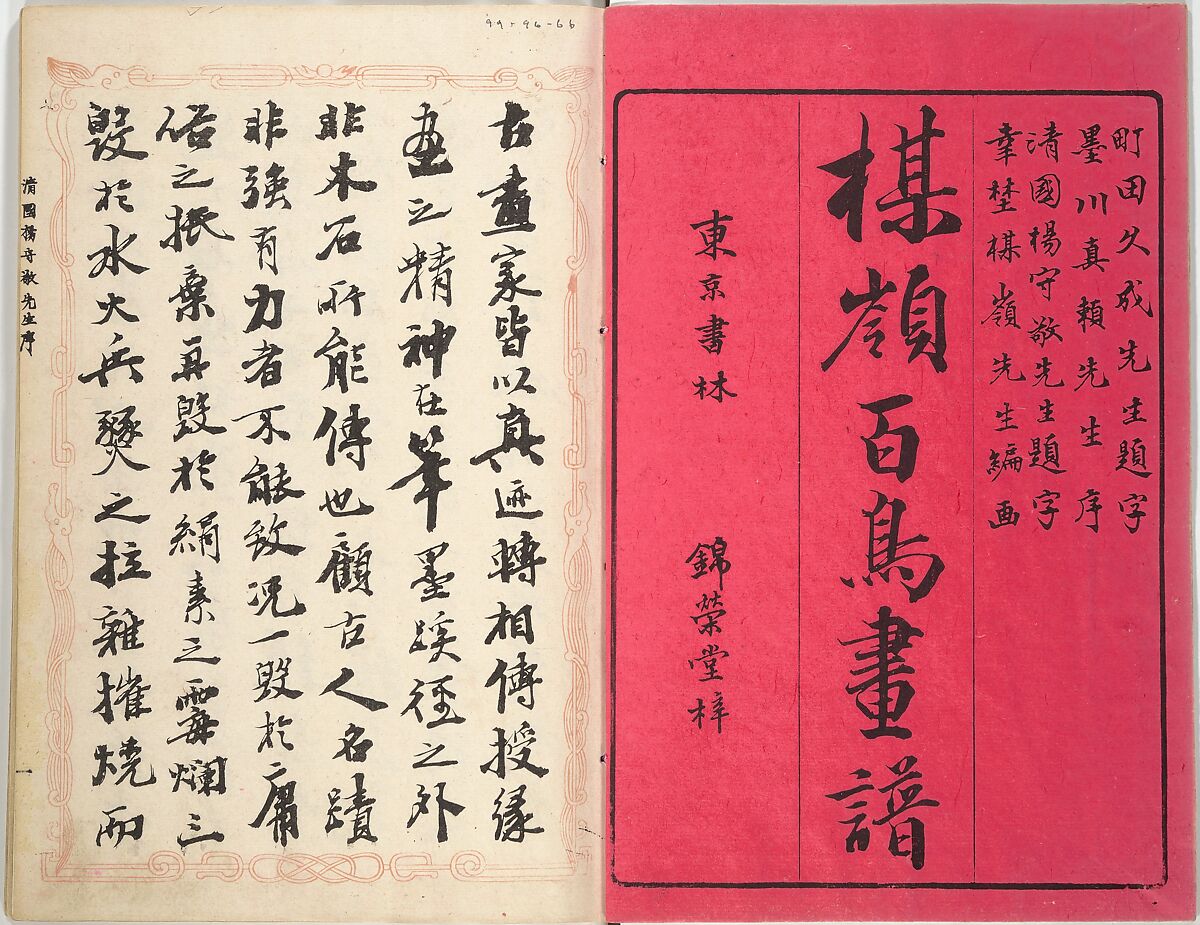 町田久成先生題字
墨川真頼先生序
清國楊守敬先生題字
幸埜楳嶺先生編画
楳嶺百鳥畫譜
東京書林 錦榮堂梓
古畫家皆以真迹轉相傳授緣
畫之精神在筆墨蹊徑之外
非木石所能傳也顧古人名蹟
非強有力者不能致況一毀於庸
俗之抵棄再毀於絹素之霉爛三
毀於水火兵燹之拉雜摧燒而
清國楊守敬先生序
99-96-66